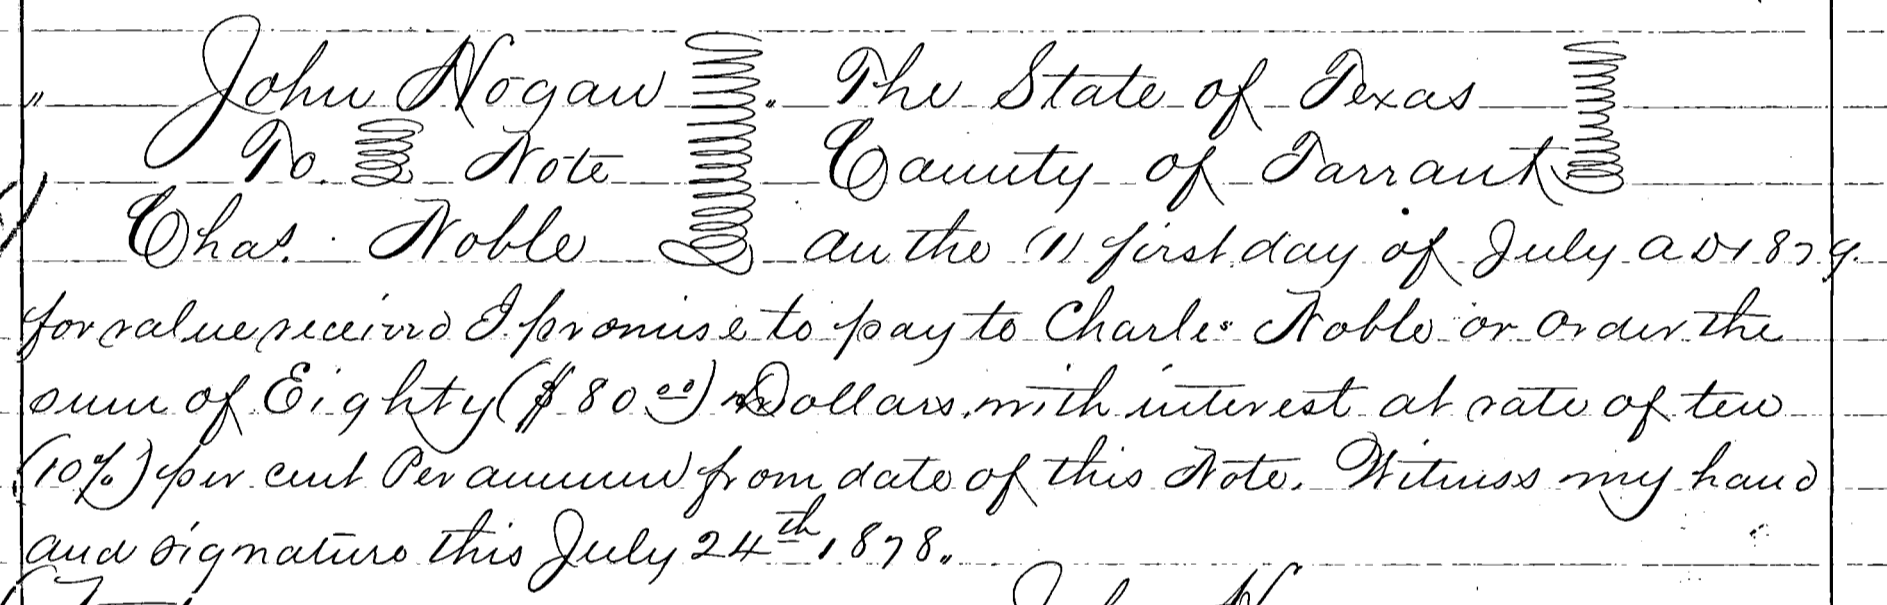 " John Hogan . The State of Texas
To Note County of Tarrant
Chas. Noble On the (1) first day of July A D 1879.
for value received I promise to pay to Charles Noble or order the
sum of Eighty ($80 00) Dollars, with interest at rate of ten
(10%) per cent Per annum from date of this Note. Witness my hand
and signature this July 24th, 1878.